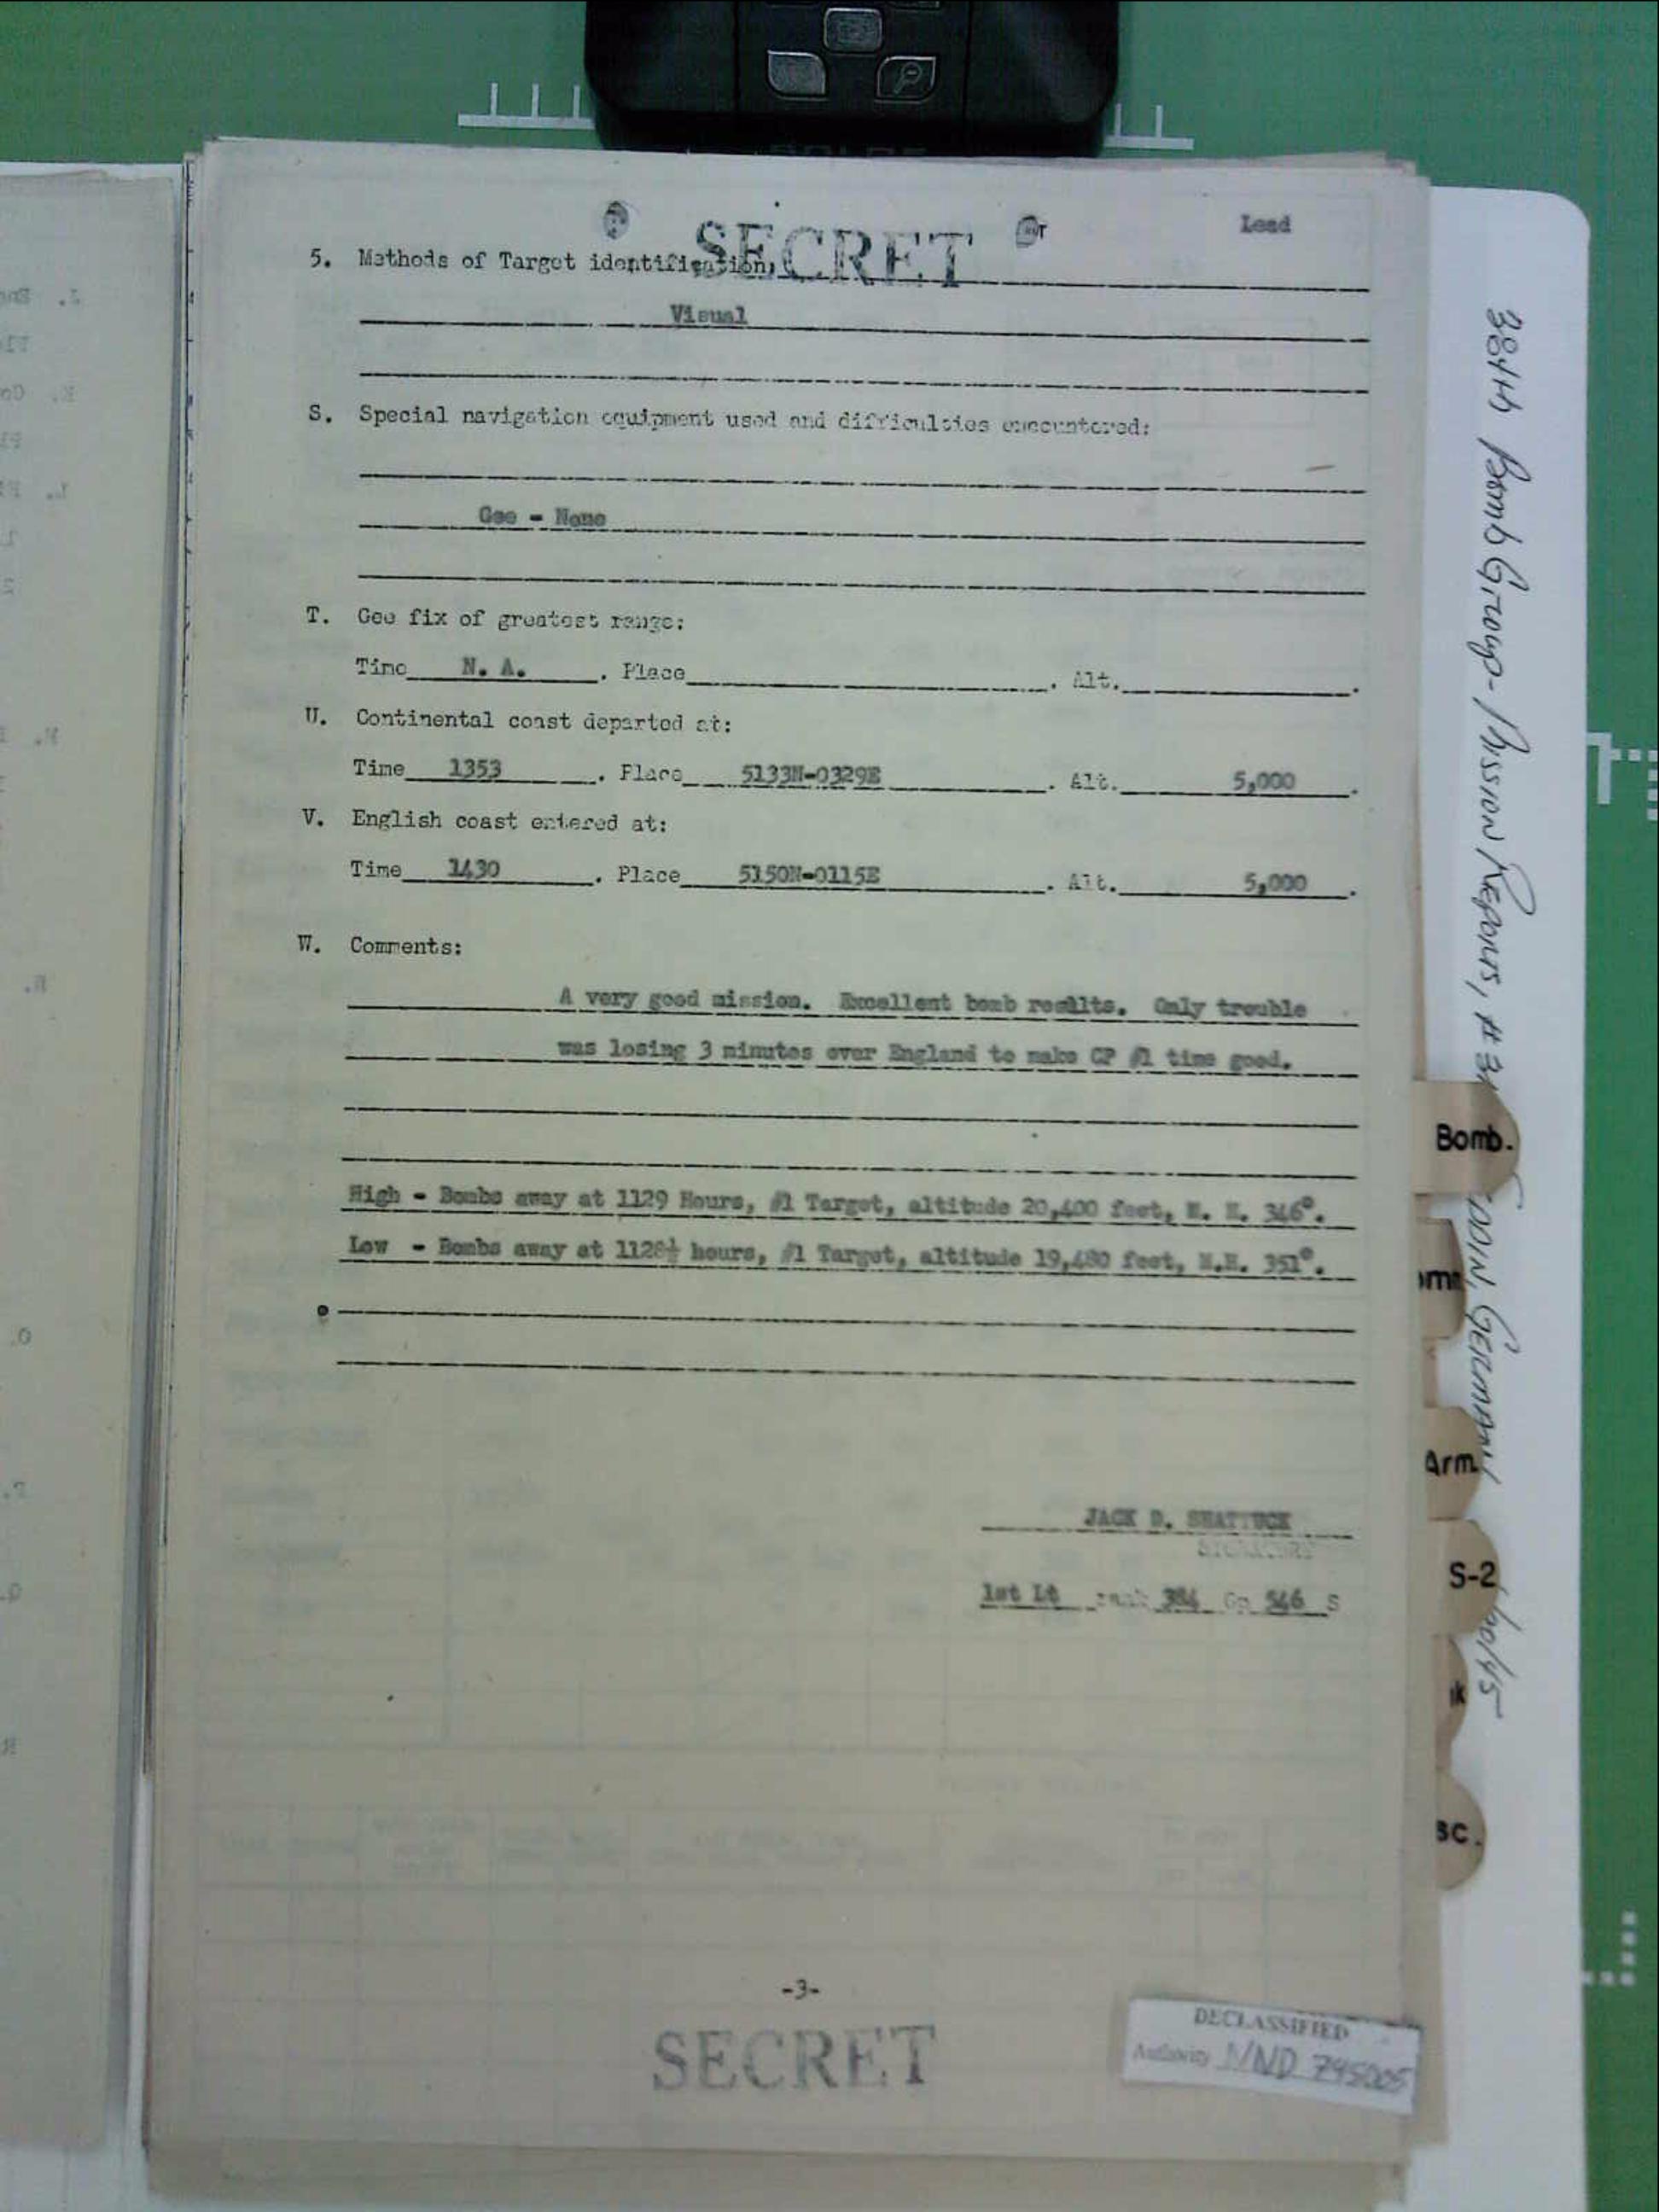 Lead
SECRET
5. Methods of Target identification,
Visual
S. Special navigation equipment used and difficulties encountered:
Gee - None
T. Gee fix of greatest range:
Time N. A. . Place . Alt. .
U. Continental coast departed at:
Time 1353 . Place 5133N-0329E . Alt. 5,000 .
V. English coast entered at:
Time 1430 . Place 5150N-0115E . Alt. 5,000 .
W. Comments:
A very good mission. Excellent bomb results. Only trouble
was losing 3 minutes over England to make CP #1 time good.
High - Bombs away at 1129 Hours, #1 Target, altitude 20,400 feet, M. H. 346°.
Low - Bombs away at 1128½ hours, #1 Target, altitude 19,480 feet, M.H. 351°.
JACK D. SHATTUCK
SIGNATURE
1st Lt rank 384 Gp 546 S
-3-
SECRET
DECLASSIFIED
Authority NND 745005
384th Bomb Group - Mission Reports, # GERMANY
Bomb.
Arm.
S-2
sc.